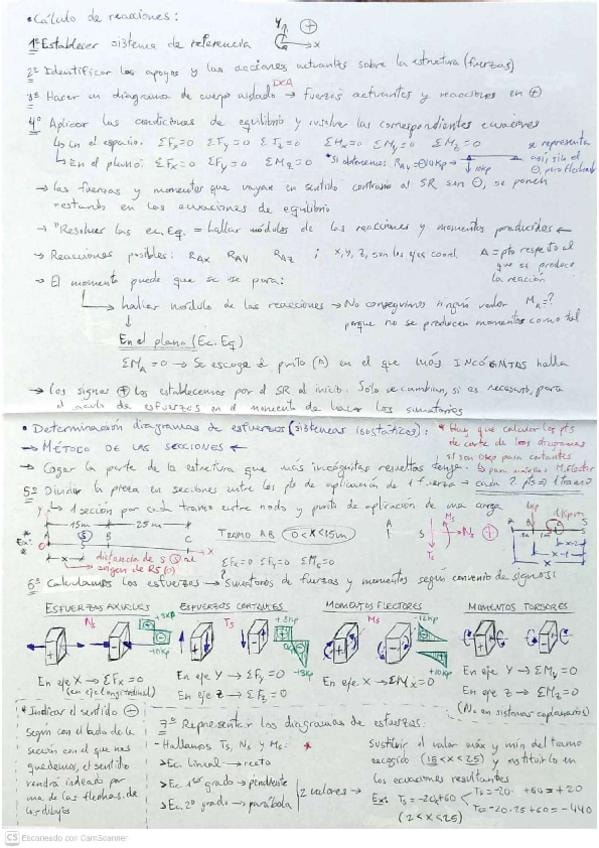 • Cálculo de reacciones:
1º Establecer sistema de referencia y x ⊕
2º Identificar los apoyos y las acciones actuantes sobre la estructura (fuerzas)
DCA
3º Hacer un diagrama de cuerpo aislado → fuerzas actuantes y reacciones en ⊕
4º Aplicar las condiciones de equilibrio y resolver las correspondientes ecuaciones
↳ En el espacio: ΣFx=0 ΣFy=0 ΣFz=0 ΣMx=0 ΣMy=0 ΣMz=0
↳ En el plano: ΣFx=0 ΣFy=0 ΣMz=0 *Si obtenemos: RAy=-10kp → ↓10kp
se representa así, sin el ⊖, pero flechado
→ las fuerzas y momentos que vayan en sentido contrario al SR son ⊖, se ponen
restando en las ecuaciones de equilibrio
→ "Resolver las ec. Eq. = hallar módulos de las reacciones y momentos producidos ←
→ Reacciones posibles: RAx RAy RAz ; x, y, z, son los ejes coord. A = pto respecto al
que se produce
la reacción
→ El momento puede que se use para:
↳ hallar módulo de las reacciones → No conseguimos ningún valor MA=?
porque no se producen momentos como tal
En el plano (Ec. Eq)
ΣMA=0 → Se escoge el punto (A) en el que más INCÓGNITAS halla
→ los signos ⊕ los establecemos por el SR al inicio. Solo se cambian, si es necesario, para
el cálculo de esfuerzos en el momento de hacer los sumatorios
• Determinación diagramas de esfuerzos (sistemas isostáticos):
* Hay que calcular los pts
de corte de los diagramas
si son 0kp para cortantes
↳ para máximo M. flector
→ MÉTODO DE LAS SECCIONES ←
→ Coger la parte de la estructura que más incógnitas resueltas tenga.
5º Dividir la pieza en secciones entre los pts de aplicación de 1 fuerza → cada 2 pts = 1 tramo
↳ 1 sección por cada tramo entre nodo y punto de aplicación de una carga
15m 25m
Ex: A B C x
TRAMO AB (0<x<15m)
ΣFx=0 ΣFy=0 ΣMs=0
→ distancia de S al
origen de RS (0)
A S Ms Ns Ts ⊕
A B x x-1 x-2
6º Calculamos los esfuerzos → Sumatorios de fuerzas y momentos según convenio de signos:
ESFUERZOS AXIALES ESFUERZOS CORTANTES MOMENTOS FLECTORES MOMENTOS TORSORES
Ns +3kp -10kp
Ts +3kp -13kp
Ms -12kp +10kp
En eje X → ΣFx=0
(en eje longitudinal)
En eje Y → ΣFy=0
En eje Z → ΣFz=0
En eje X → ΣMx=0
En eje Y → ΣMy=0
En eje Z → ΣMz=0
(No en sistemas coplanarios)
* Indicar el sentido ⊕
Según con el lado de la
sección con el que nos
quedemos, el sentido
vendrá indicado por
una de las flechas de
los dibujos
7º Representar los diagramas de esfuerzos:
- Hallamos Ts, Ns y Ms:
> Ec. lineal → recto
> Ec. 1er grado → pendiente
> Ec. 2º grado → parábola
2 valores →
Sustituir el valor máx y mín del tramo
escogido (15<x<25) y sustituirlo en
las ecuaciones resultantes
Ex: Ts=-20x+60
(2<x<25)
Ts=-20· +60=+20
Ts=-20·25+60=-440
CS Escaneado con CamScanner